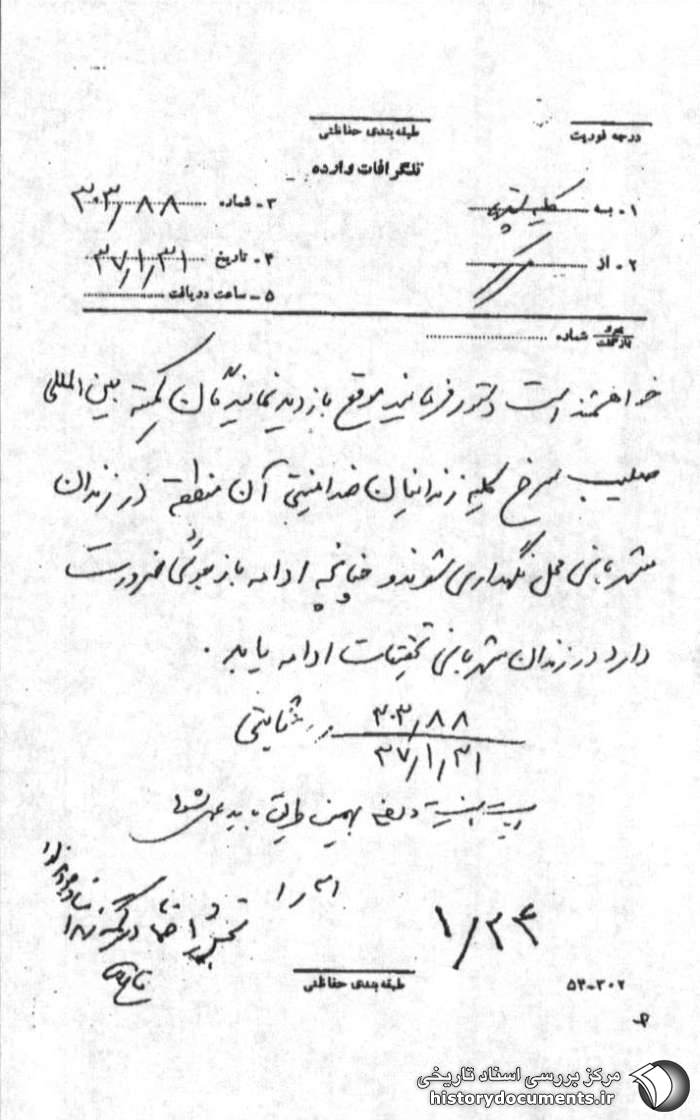 درجه فوریت
طبقه بندی حفاظتی
تلگرافات وارده
۱ـ به
۳ـ شماره ۳۰۳/۸۸
۲ـ از
۴ـ تاریخ ۳۷/۱/۳۱
۵ـ ساعت دریافت
شماره
خواهشمند است دستور فرمائید موقع بازدید نمایندگان کمیته بین المللی
صلیب سرخ کلیه زندانیان ضد امنیتی آن منطقه در زندان
شهربانی محل نگهداری شوند و چنانچه ادامه بازجوئی ضرورت
دارد در زندان شهربانی تحقیقات ادامه یابد .
۳۰۳/۸۸
۳۷/۱/۳۱
ثابتی
همین
باید عمل شود
۱/۳۴
طبقه بندی حفاظتی
۵۳-۳۰۲
مرکز بررسی اسناد تاریخی
historydocuments.ir